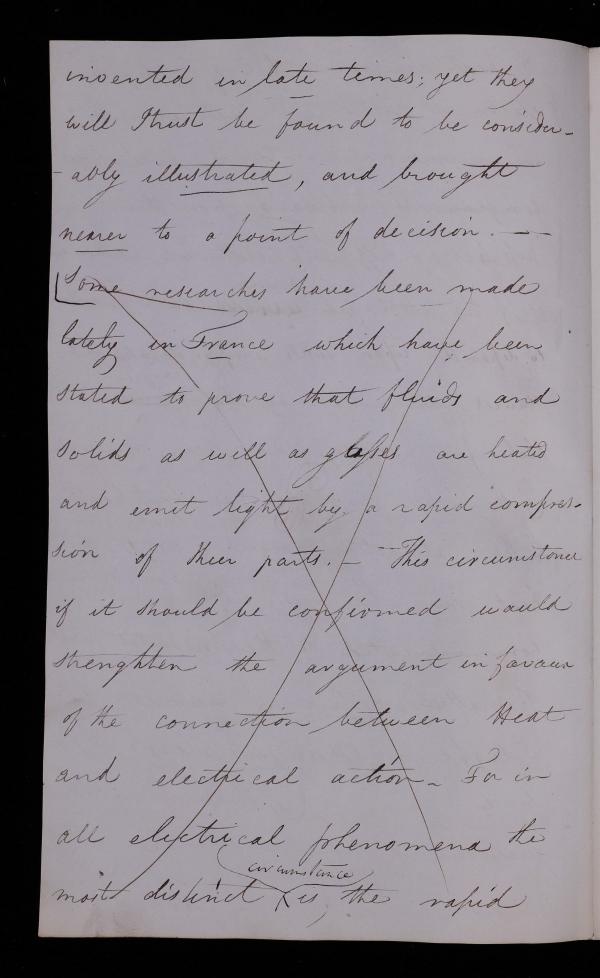 invented in late times; yet they
will I trust be found to be consider-
-ably illustrated, and brought
nearer to a point of decision. —
Some researches have been made
lately in France which have been
stated to prove that fluids and
solids as well as gasses are heated
and emit light by a rapid compres-
sion of their parts. — This circumstance
if it should be confirmed would
strenghten the argument in favour
of the connection between Heat
and electrical action - For in
all electrical phenomena the
circumstance
most distinct is, the rapid